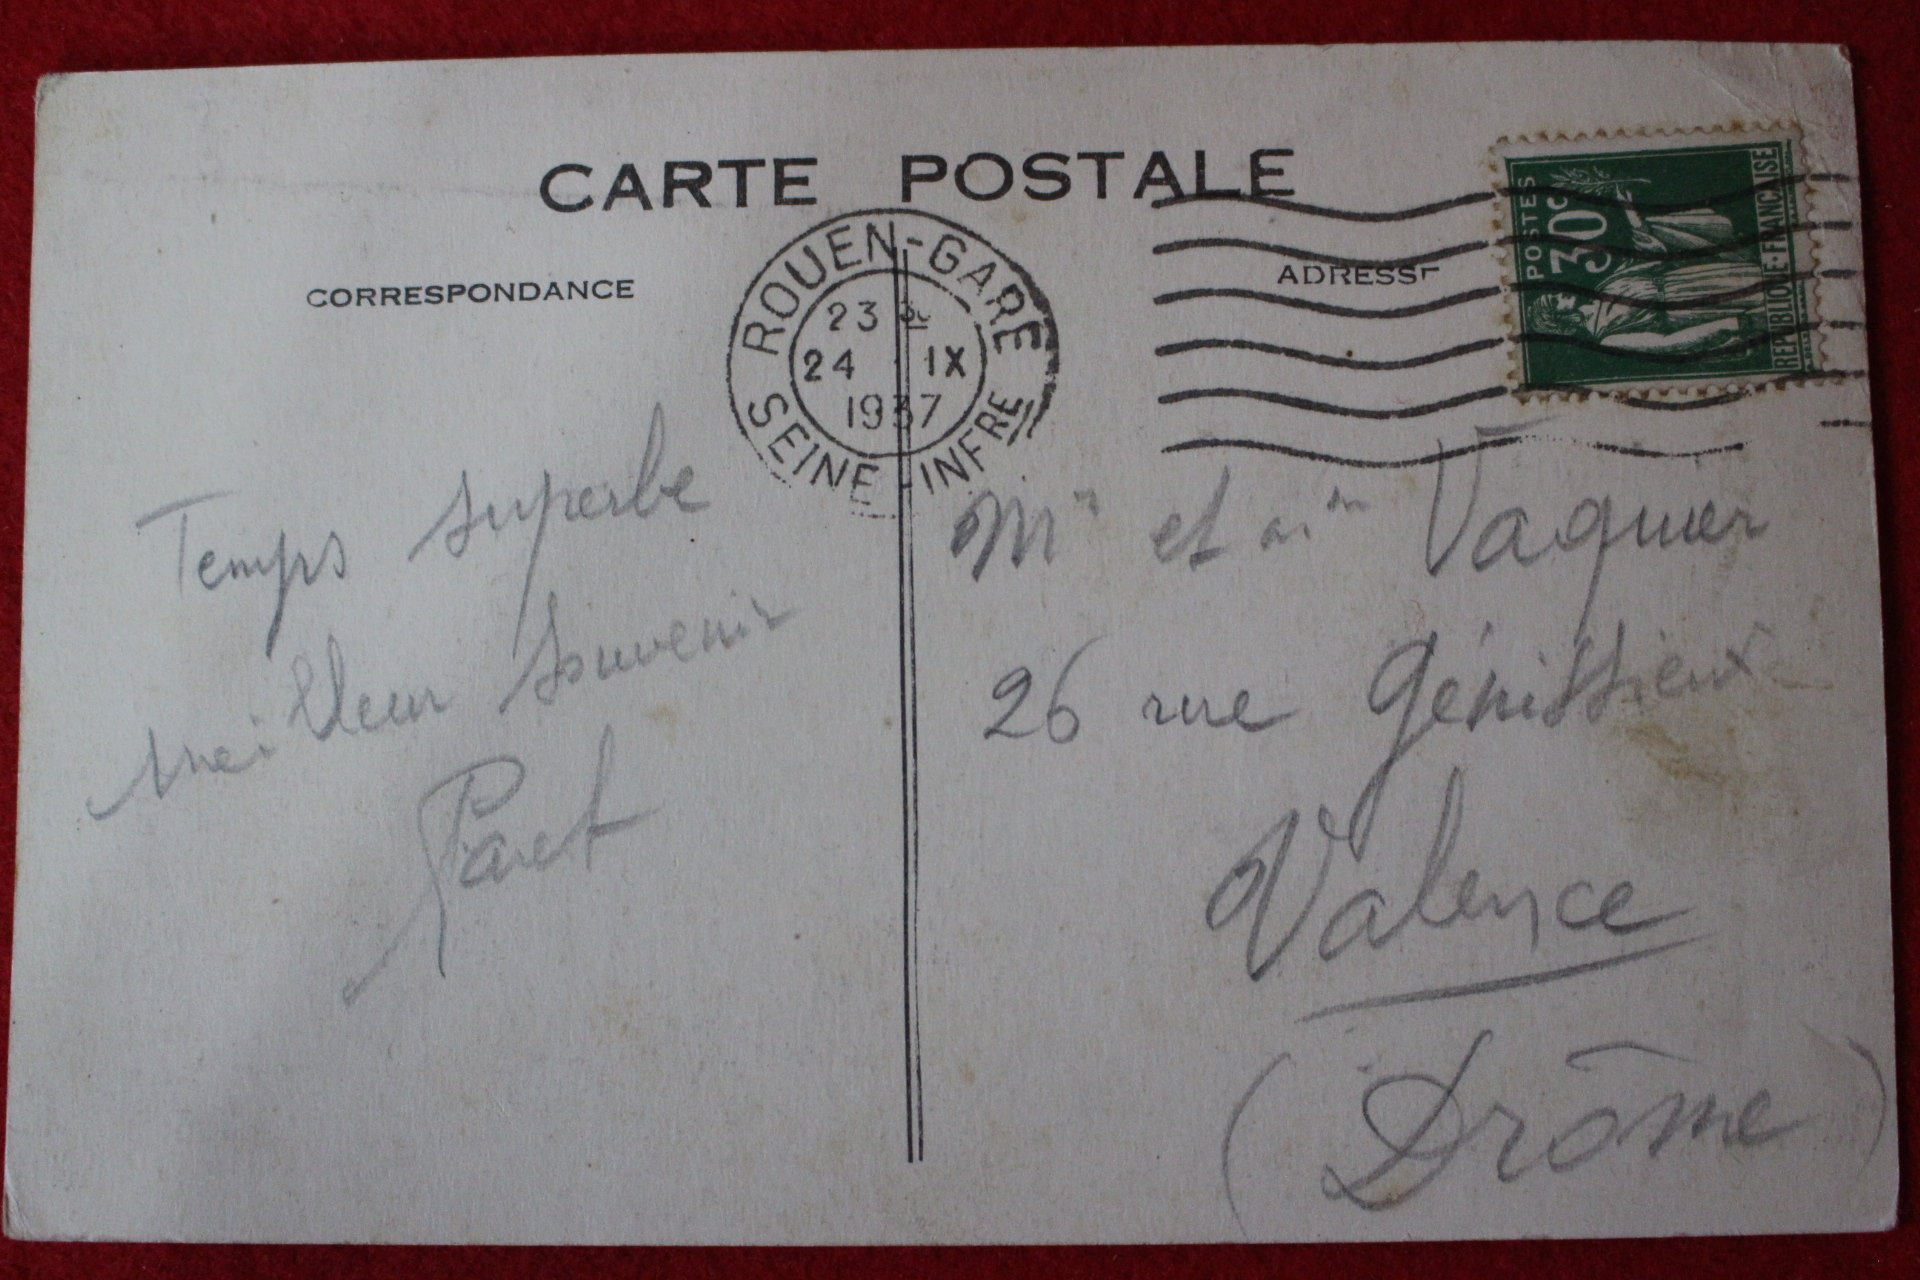 CARTE POSTALE
CORRESPONDANCE
ADRESSE
ROUEN-GARE
23 30
24 IX
1937
SEINE-INFRE
POSTES
30c
REPUBLIQUE·FRANÇAISE
Temps superbe
meilleur souvenir
Paret
Mr et Mme Vaquier
26 rue Génissieux
Valence
(Drôme)